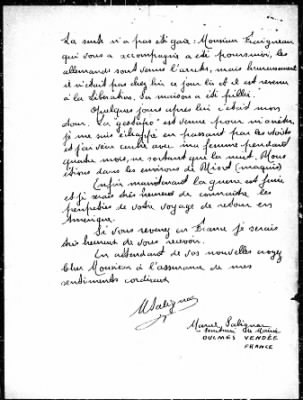 La suite n'a pas été gaie : Monsieur Fraigneau
qui vous a accompagné a été poursuivi, les
allemands sont venus l'arrêter, mais heureusement
il n'était pas chez lui ce jour là et il est revenu
à la libération. Sa maison a été pillée.
Quelques jours après lui c'était mon
tour. La gestapo est venue pour m'arrêter,
je me suis échappé en passant par les toits
et j'ai vécu caché avec ma femme pendant
quatre mois, ne sortant que la nuit. Nous
étions dans les environs de Niort (maquis)
Enfin maintenant la guerre est finie
et je serais très heureux de connaître les
péripéties de votre voyage de retour en
Amérique.
Si vous revenez en France je serais
très heureux de vous revoir.
En attendant de vos nouvelles croyez
Cher Monsieur à l'assurance de mes
sentiments cordiaux
M Salignac
Marcel Salignac
Secrétaire de Mairie
OULMES VENDÉE
FRANCE